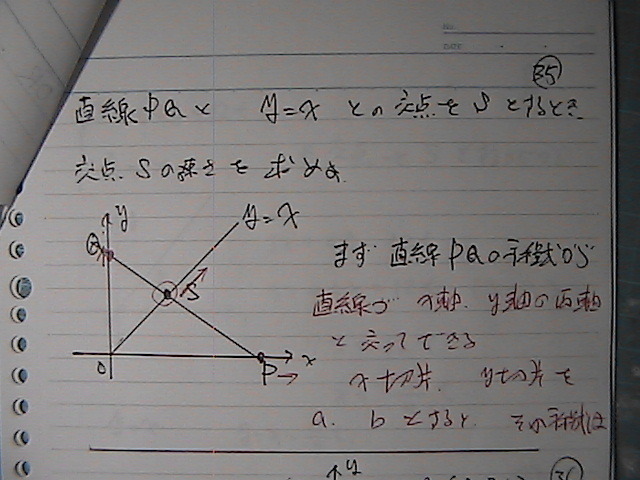 NO.
DATE
35
直線PQと y=x との交点をSとするとき
交点Sの速さを求めよ
y
y=x
Q
S
O
P
x
まず 直線PQの方程式から
直線が x軸、y軸の両軸
と交ってできる
x切片、y切片を
a. b とすると、その方程式は
y